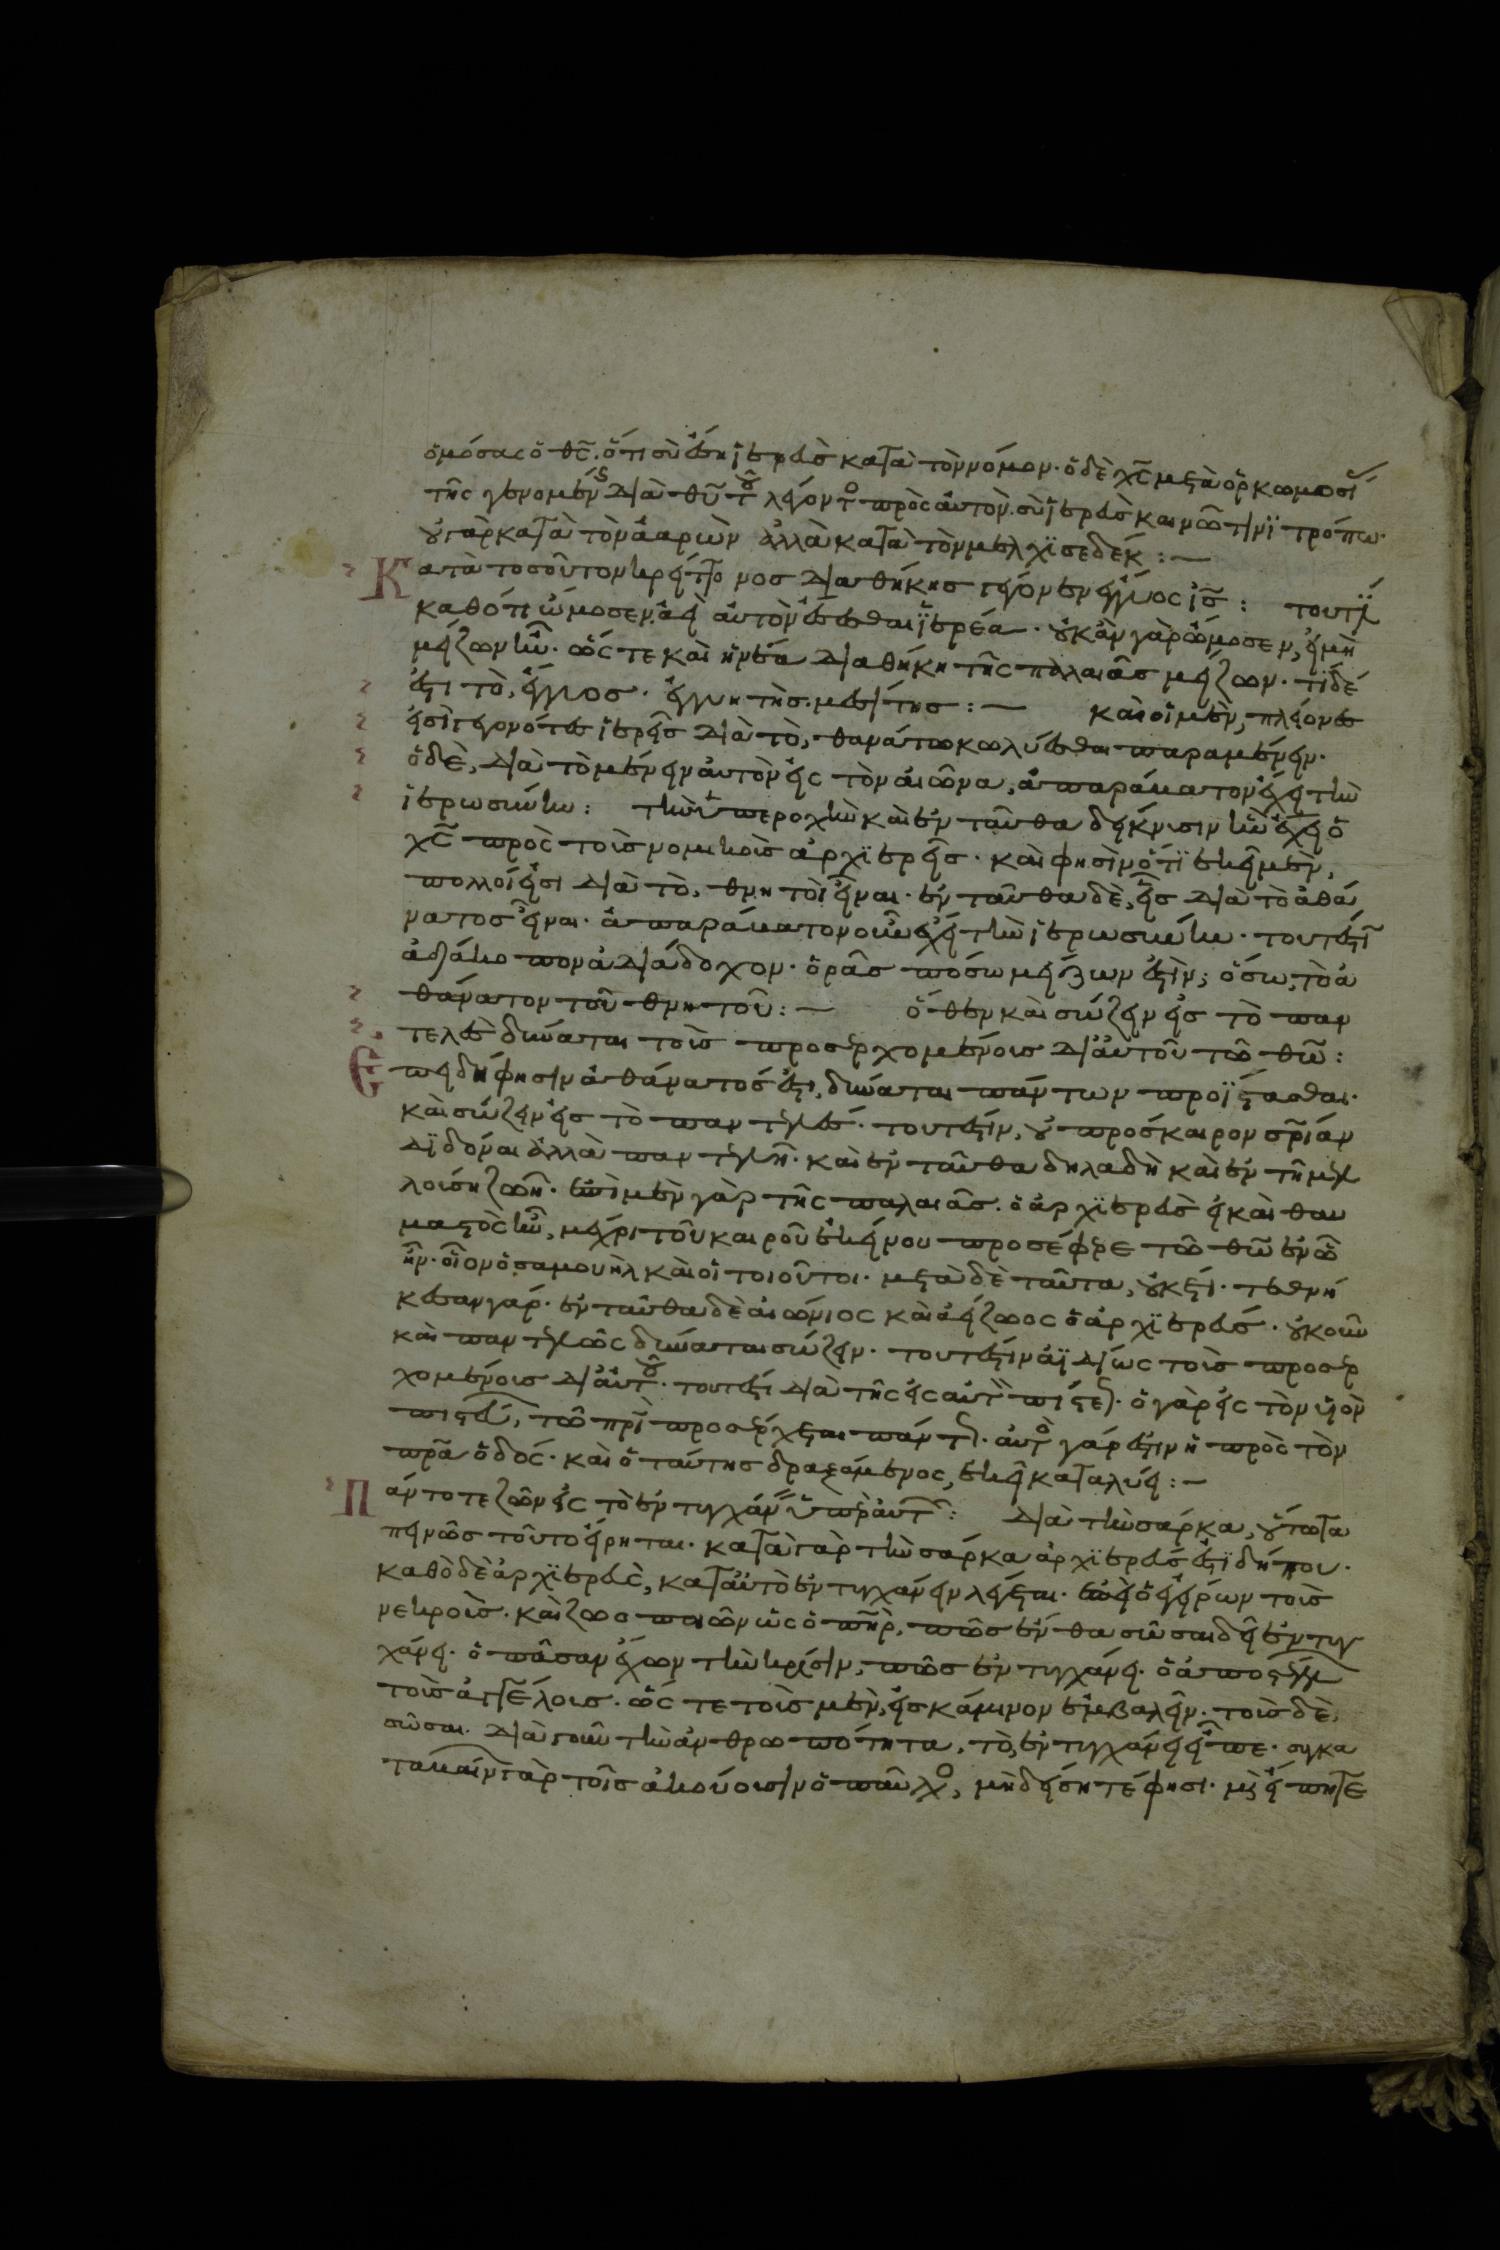 ὀμόσας ὁ θς̅. ὅτι σὺ ἔση ἱερεὺς κατὰ τὸν νόμον. ὁ δὲ χς̅ μετὰ ὁρκωμοσί
τῆς γενομένς διὰ θῦ τοῦ λέγοντο πρὸς αὐτὸν. σὺ ἱερεὺς καινῶ τινὶ τρόπω.
οὐ γὰρ κατὰ τὸν ἀαρὼν ἀλλὰ κατὰ τὸν μελχϊσεδέκ : —
Κατὰ τοσοῦτον κρείττονος διαθήκης γέγονεν ἔγγυος ις̅ : τουτέ
καθότι ὤμοσεν ἀεὶ αὐτὸν ἔσεσθαι ἱερέα. οὐκ ἂν γὰρ ὤμοσεν, εἰ μὴ
μείζων ἦν. ὥς τε καὶ ἡ νέα διαθήκη τῆς παλαιᾶς μείζων. τί δέ
ἐστι τὸ, ἔγγυος. ἐγγυητὴς. μεσίτης : — καὶ οἱ μὲν, πλείονες
εἰσὶ γεγονότες ἱερεῖς διὰ τὸ, θανάτω κωλύεσθαι παραμένειν.
ὁ δὲ, διὰ τὸ μένειν αὐτὸν εἰς τὸν αἰῶνα, ἀπαράβατον ἔχει τὴν
ἱερωσύνην : τὴν ὑπεροχὴν καὶ ἐνταῦθα δείκνυσιν ἣν ἔχει ὁ
χς̅ πρὸς τοῖς νομικοῖς ἀρχϊερεῖς. καὶ φησὶν ὅτι ἐκεῖ μὲν,
πολλοί εἰσι διὰ τὸ, θνητοὶ εἶναι. ἐνταῦθα δὲ, εἷς διὰ τὸ ἀθά
νατος εἶναι. ἀπαράβατον οὖν ἔχει τὴν ἱερωσύνην. τουτέστι
ἀδιάκοπον ἀδιάδοχον. ὁρᾶς πόσω μείζων ἐστὶν; ὅσω, τὸ ἀ
θάνατον τοῦ θνητοῦ : — ὅθεν καὶ σώζειν εἰς τὸ παν
τελὲς δύναται τοῖς προσερχομένοις δι αὐτοῦ τῶ θῶ :
Ἐπειδή φησιν ἀθάνατός ἐστι, δύναται πάντων προΐστασθαι.
καὶ σώζειν εἰς τὸ παντελές. τουτέστιν, οὐ πρόσκαιρον σρίαν
διδόναι ἀλλὰ παντελῆ. καὶ ἐνταῦθα δηλαδὴ καὶ ἐν τῆ μελ
λούση ζωῆ. ἐπὶ μὲν γὰρ τῆς παλαιᾶς. ὁ ἀρχϊερεὺς εἰ καὶ θαυ
μαστὸς ἦν, μέχρι τοῦ καιροῦ ἐκείνου προσέφερε τῶ θῶ ἐν ὧ
ἦν. οἷον ὁ σαμουὴλ καὶ οἱ τοιοῦτοι. μετὰ δὲ ταῦτα, οὐκέτι. τεθνή
κεσαν γάρ. ἐνταῦθα δὲ αἰώνιος καὶ ἀείζωος ὁ ἀρχϊερεύς. οὐκοῦν
καὶ παντελῶς δύναται σώζειν. τουτέστιν ἀϊδίως τοῖς προσερ
χομένοις δι αὐτοῦ. τουτέστι διὰ τῆς εἰς αὐτὸν πίστεως. ὁ γὰρ εἰς τὸν υἱὸν
πιστεύων, τῶ πρὶ προσέρχεται πάντως. αὐτὸ γάρ ἐστιν ἡ πρὸς τὸν
πρα ὁδός. καὶ ὁ ταύτης δραξάμενος, ἐκεῖ καταλύει : —
Πάντοτε ζῶν εἰς τὸ ἐντυγχάνειν ὑπὲρ αὐτῶν : διὰ τὴν σάρκα, οὕτω τα
πεινῶς τοῦτο εἴρηται. κατὰ γὰρ τὴν σάρκα ἀρχϊερεύς ἐστι δήπου.
καθὸ δὲ ἀρχϊερεὺς, κατ αὐτὸ ἐντυγχάνειν λέγεται. ἐπεὶ ὁ ἐγείρων τοὺς
νεκροὺς. καὶ ζωοποιῶν ὡς ὁ πηρ, πῶς ἔνθα σῶσαι δεῖ ἐντυγ
χάνει. ὁ πᾶσαν ἔχων τὴν κρίσιν, πῶς ἐντυγχάνει. ὁ ἀποστέλλων
τοὺς ἀγγέλους. ὥς τε τοὺς μὲν, εἰς κάμινον ἐμβαλεῖν. τοὺς δὲ,
σῶσαι. διὰ γοῦν τὴν ἀνθρωπότητα, τὸ, ἐντυγχάνει εἶπε. συγκα
ταβαίνων γὰρ τοῖς ἀκούουσιν ὁ παῦλο, μὴ δείσητέ φησι. μὴ εἴπητε